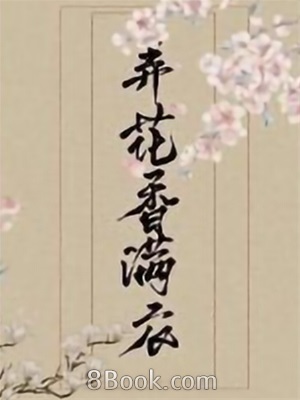 弄花香满衣
8Book.com